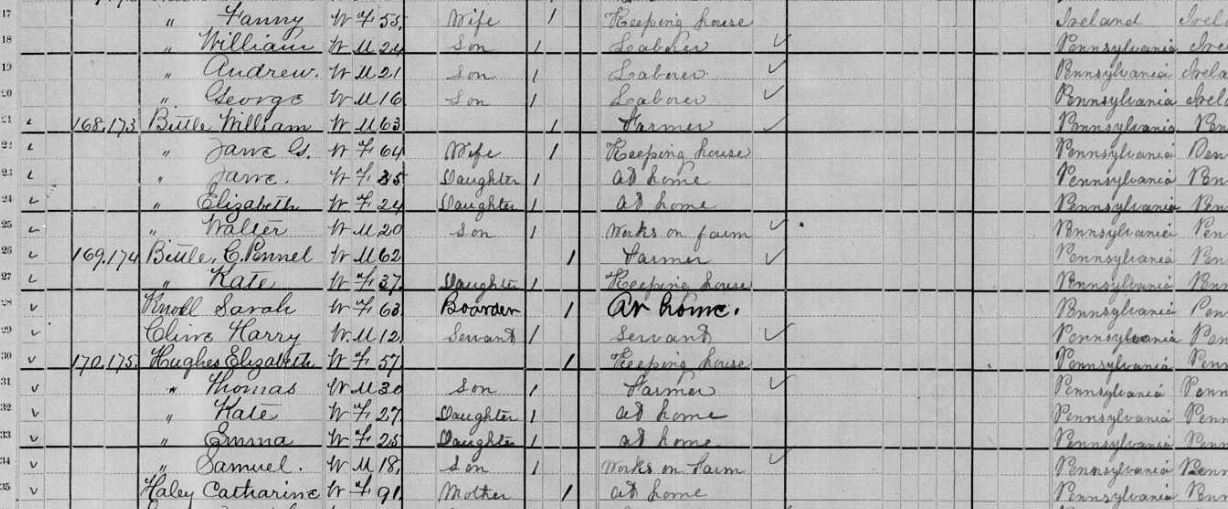 17 " Fanny W F 55 Wife 1 Keeping house Ireland
18 " William W M 24 Son 1 Laborer ✓ Pennsylvania
19 " Andrew. W M 21 Son 1 Laborer ✓ Pennsylvania
20 " George W M 16 Son 1 Laborer ✓ Pennsylvania
21 168.173 Bittle William W M 63 1 Farmer ✓ Pennsylvania
22 " Jane G. W F 64 Wife 1 Keeping house Pennsylvania
23 " Jane. W F 35 Daughter 1 at home Pennsylvania
24 " Elizabeth W F 24 Daughter 1 at home Pennsylvania
25 " Walter W M 20 Son 1 Works on farm ✓ Pennsylvania
26 169.174 Bittle, C. Pennel W M 62 1 Farmer ✓ Pennsylvania
27 " Kate W F 37. Daughter 1 Keeping house Pennsylvania
28 Knoll Sarah W F 63 Boarder 1 At home. Pennsylvania
29 Cline Harry W. M 12 Servant 1 Servant ✓ Pennsylvania
30 170.175. Hughes Elizabeth W F 57 1 Keeping house Pennsylvania Penn
31 " Thomas W M 30 Son 1 Farmer ✓ Pennsylvania Penn
32 " Kate W F 27 Daughter 1 at home Pennsylvania Penn
33 " Emma W F 25 Daughter 1 at home Pennsylvania Penn
34 " Samuel. W M 18, Son 1 Works on Farm ✓ Pennsylvania Penn
35 Haley Catharine W F 91 Mother 1 at home Pennsylvania Penn